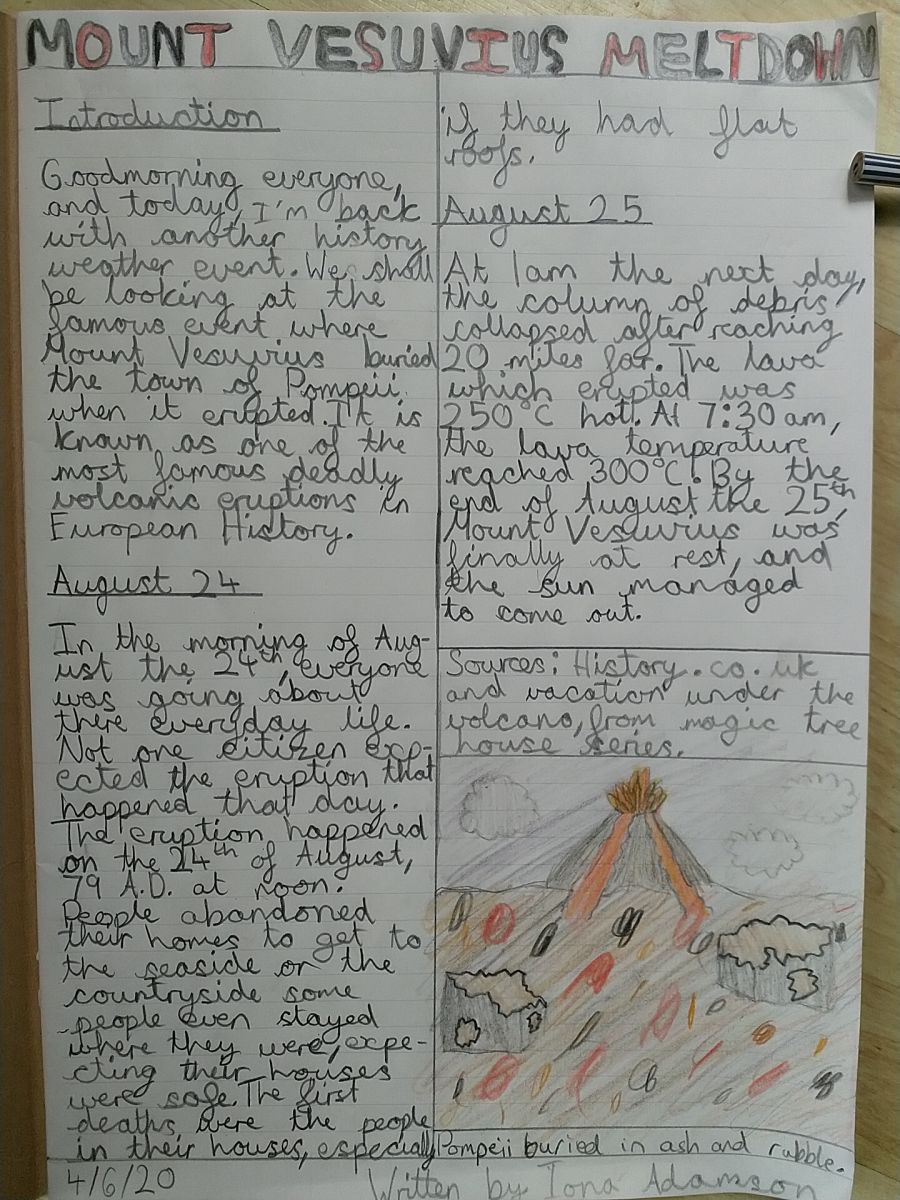 MOUNT VESUVIUS MELTDOWN
Introduction
Goodmorning everyone,
and today, I'm back
with another history
weather event. We shall
be looking at the
famous event where
Mount Vesuvius buried
the town of Pompeii
when it erupted. It is
known as one of the
most famous deadly
volcanic eruptions in
European History.
August 24
In the morning of Aug-
ust the 24th, everyone
was going about
there everyday life.
Not one citizen exp-
ected the eruption that
happened that day.
The eruption happened
on the 24th of August,
79 A.D. at noon.
People abandoned
their homes to get to
the seaside or the
countryside some
people even stayed
where they were, expe-
cting their houses
were safe. The first
deaths were the people
in their houses, especially
if they had flat
roofs.
August 25
At 1am the next day,
the column of debris
collapsed after reaching
20 miles far. The lava
which erupted was
250°C hot. At 7:30am,
the lava temperature
reached 300°C. By the
end of August the 25th,
Mount Vesuvius was
finally at rest, and
the sun managed
to come out.
Sources: History.co.uk
and vacation under the
volcano, from magic tree
house series.
Pompeii buried in ash and rubble.
4/6/20
Written by Iona Adamson